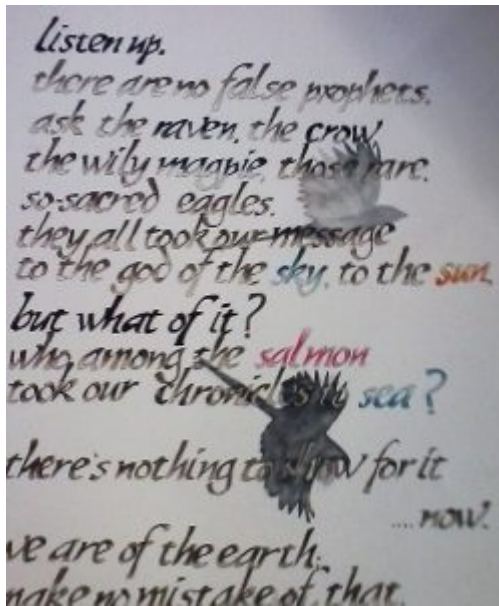 listen up.
there are no false prophets.
ask the raven, the crow,
the wily magpie, those rare,
so-sacred eagles.
they all took our message
to the god of the sky, to the sun.
but what of it?
who among the salmon
took our chronicles sea?
there's nothing to show for it
.... now.
we are of the earth;
make no mistake of that